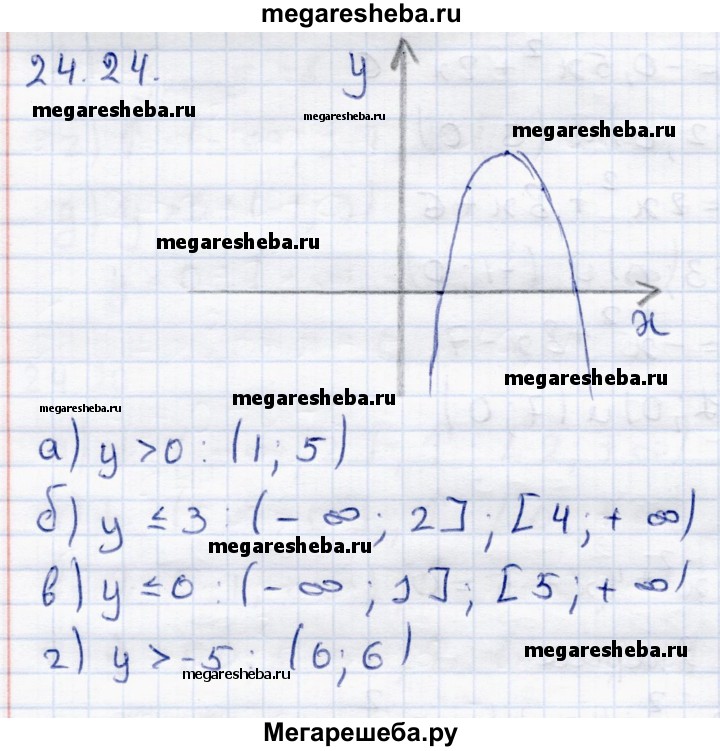 megaresheba.ru
24.24.
y
megaresheba.ru
megaresheba.ru
megaresheba.ru
megaresheba.ru
x
megaresheba.ru
megaresheba.ru
megaresheba.ru
а) y > 0 : (1; 5)
б) y ≤ 3 : (-∞; 2]; [4; +∞)
megaresheba.ru
в) y ≤ 0 : (-∞; 1]; [5; +∞)
г) y > -5 : (0; 6)
megaresheba.ru
megaresheba.ru
Мегарешеба.ру